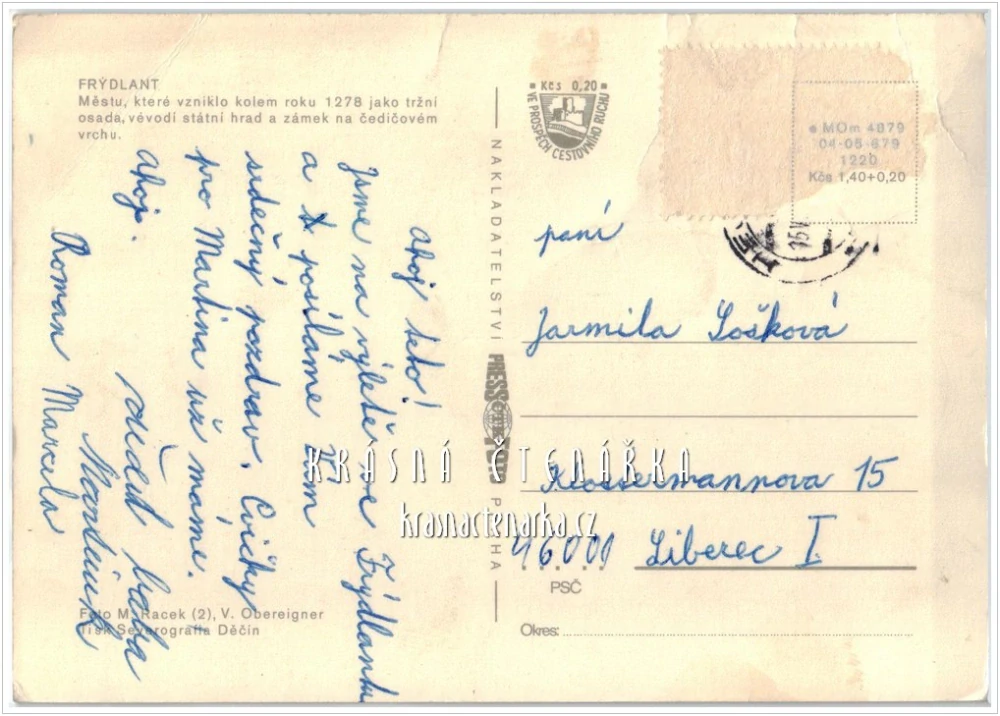 FRÝDLANT
Městu, které vzniklo kolem roku 1278 jako tržní
osada, vévodí státní hrad a zámek na čedičovém
vrchu.
ahoj teto!
Jsme na výletě ve Frýdlantu
a posíláme Vám
srdečný pozdrav. Cvičky
pro Martina už máme.
ahoj.
děda babka
Martínek
Roman Marcela
Foto M. Racek (2), V. Obereigner
Tisk Severografia Děčín
NAKLADATELSTVÍ PRESSFOTO PRAHA
Kčs 0,20
VE PROSPĚCH CESTOVNÍHO RUCHU
MOm 4879
04-05-679
1220
Kčs 1,40+0,20
15 V
paní
Jarmila Lošková
Klostermannova 15
46001 Liberec I
PSČ
Okres:
KRÁSNÁ ČTENÁŘKA
krasnactenarka.cz